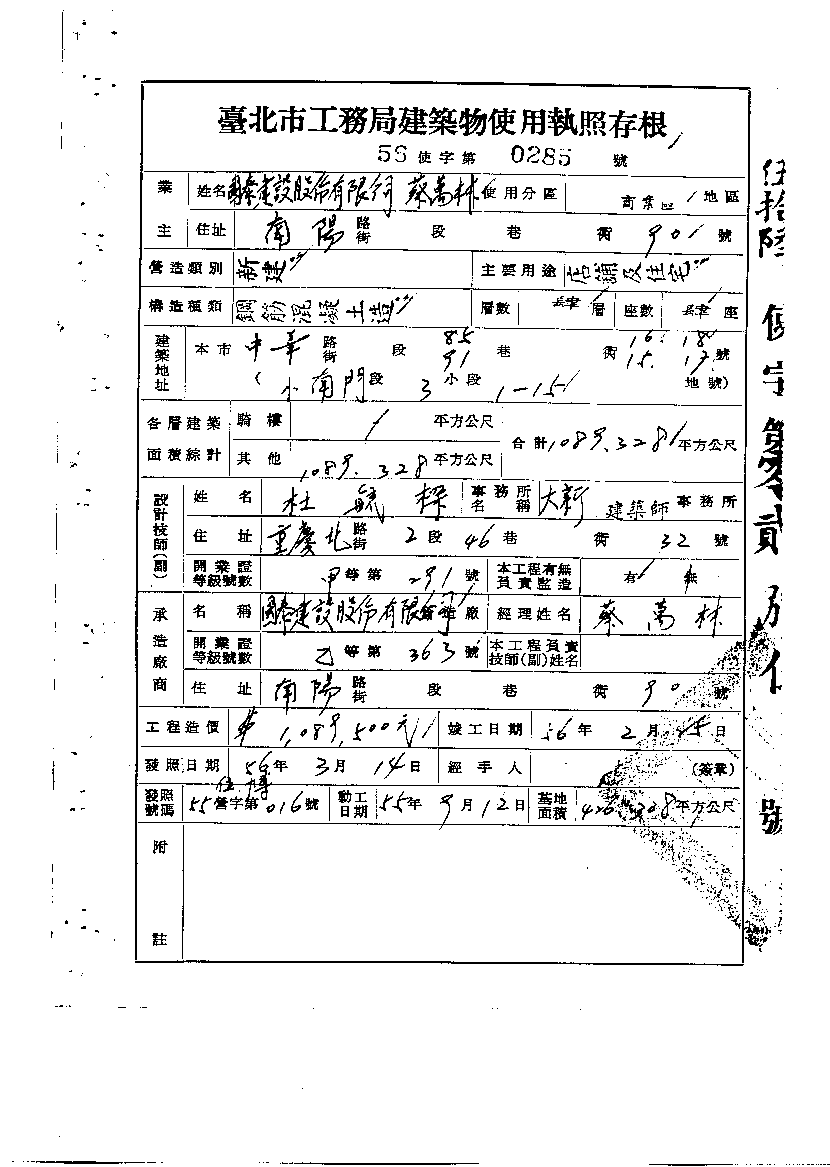 臺北市工務局建築物使用執照存根
56 使字第 0285 號
業 姓名 國泰建設股份有限公司 蔡萬林 使用分區 商業區 地區
主 住址 南陽 路街 段 巷 衖 90 號
營造類別 新建 主要用途 店舖及住宅
構造種類 鋼筋混凝土造 層數 層 座數 座
建築地址 本市 中華 路街 段 85 91 巷 衖 16. 18 15. 17 號
(小南門段 3 小段 1-15 地號)
各層建築面積綜計 騎樓 / 平方公尺 合計 1089.328 平方公尺
其他 1089.328 平方公尺
設計技師(副) 姓名 杜毓樑 事務所名稱 大新 建築師 事務所
住址 重慶北 路街 2 段 46 巷 衖 32 號
開業證等級號數 甲 等第 291 號 本工程有無負責監造 有 無
承造廠商 名稱 國泰建設股份有限 營造廠 經理姓名 蔡萬林
開業證等級號數 乙 等第 363 號 本工程負責技師(副)姓名
住址 南陽 路街 段 巷 衖 90 號
工程造價 1,089,500元 竣工日期 56 年 2 月 15 日
發照日期 56 年 3 月 14 日 經手人 (簽章)
發照號碼 55 營字第 016 號 動工日期 55 年 9 月 12 日 基地面積 426.308 平方公尺
附註
伍拾陸 使字第零貳 號